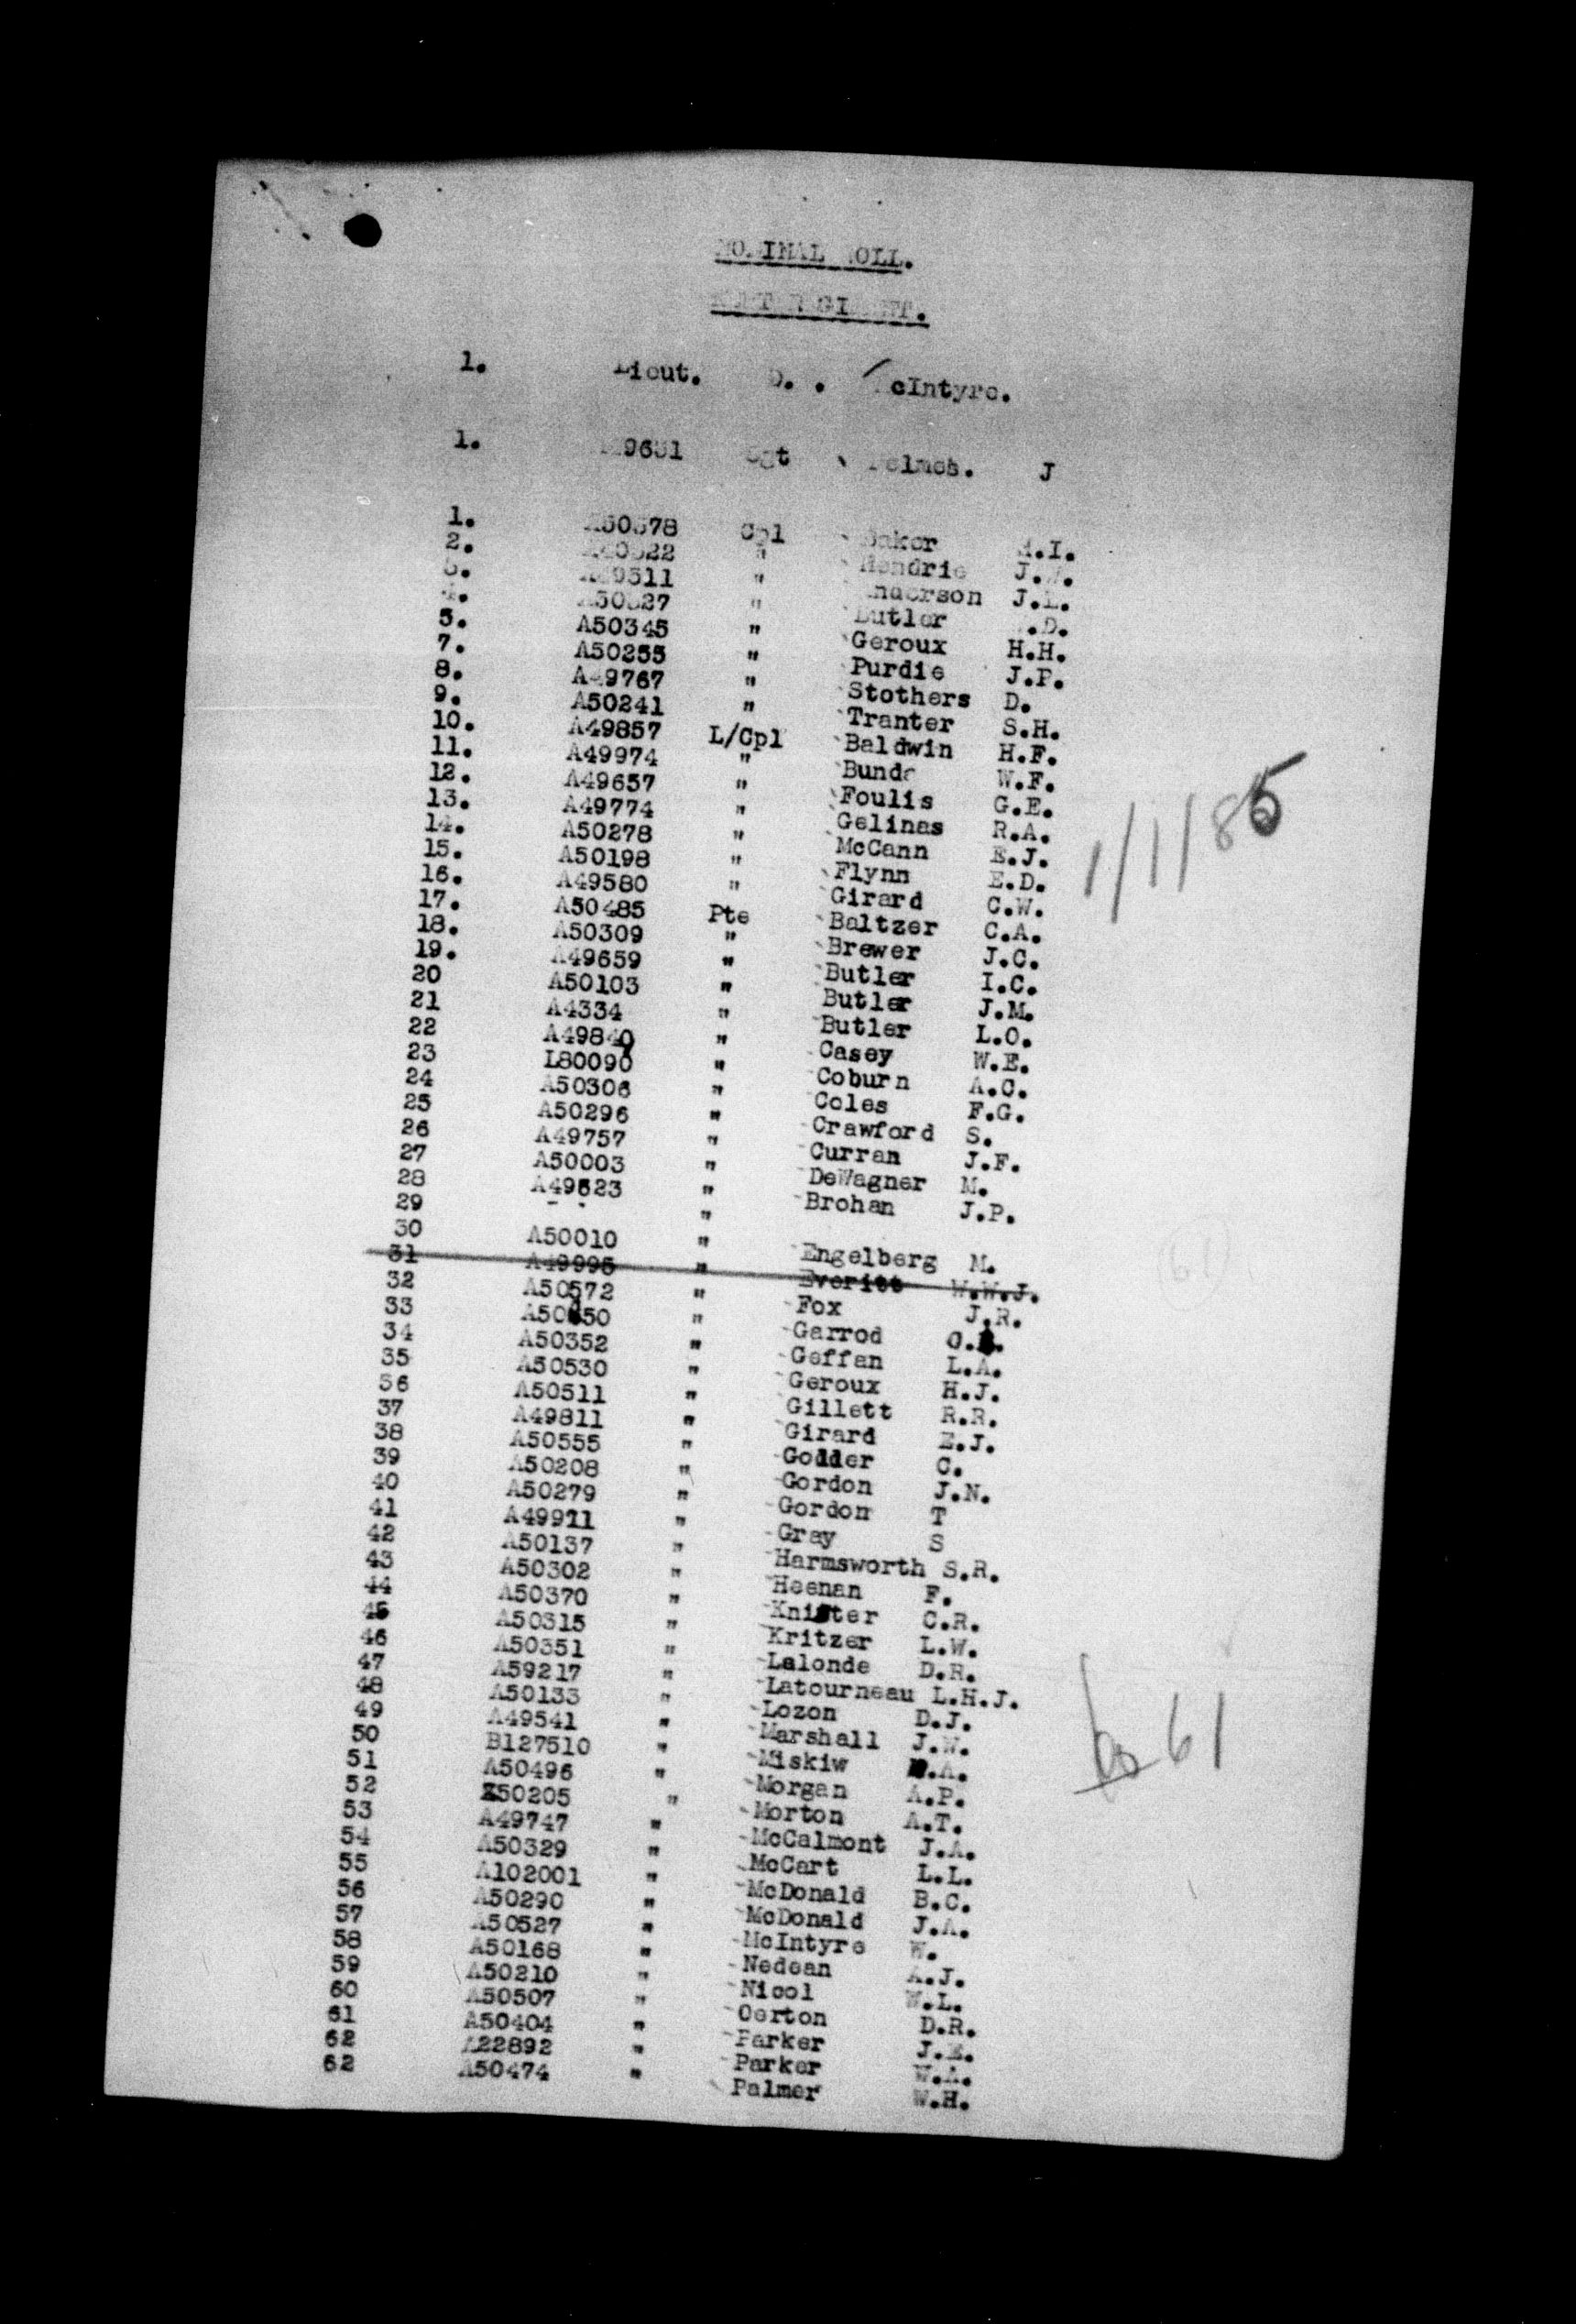 NOMINAL ROLL.
KENT REGIMENT.
1. Lieut. D. . McIntyre.
1. Sgt J
1. Cpl Baker
2. " Hendrie J.W.
3. A49511 " Anderson J.L.
4. " Butler
5. A50345 " Geroux H.H.
7. A50255 " Purdie J.P.
8. A49767 " Stothers D.
9. A50241 " Tranter S.H.
10. A49857 L/Cpl Baldwin H.F.
11. A49974 " W.F.
12. A49657 " Foulis G.E.
13. A49774 " Gelinas R.A.
14. A50278 " McCann E.J.
15. A50198 " Flynn E.D.
16. A49580 " Girard C.W.
17. A50485 Pte Baltzer C.A.
18. A50309 " Brewer J.C.
19. A49659 " Butler I.C.
20 A50103 " Butler J.M.
21 A4334 " Butler L.O.
22 A49849 " Casey W.E.
23 L80090 " Coburn A.C.
24 A50306 " Coles F.G.
25 A50296 " Crawford S.
26 A49757 " Curran J.F.
27 A50003 " DeWagner M.
28 A49623 " Brohan J.P.
29 "
30 A50010 " Engelberg M.
31 A49995 " Everitt W.W.J.
32 A50572 " Fox J.R.
33 " Garrod
34 A50352 " Geffan L.A.
35 A50530 " Geroux H.J.
36 A50511 " Gillett R.R.
37 A49811 " Girard E.J.
38 A50555 " Godder C.
39 A50208 " Gordon J.N.
40 A50279 " Gordon T
41 A49911 " Gray S
42 A50137 " Harmsworth S.R.
43 A50302 " Heenan F.
44 A50370 " Knister C.R.
45 A50315 " Kritzer L.W.
46 A50351 " Lalonde D.R.
47 A59217 " Latourneau L.H.J.
48 A50133 " Lozon D.J.
49 A49541 " Marshall J.W.
50 B127510 " Miskiw
51 A50496 " Morgan A.P.
52 A50205 " Morton A.T.
53 A49747 " McCalmont J.A.
54 A50329 " McCart L.L.
55 A102001 " McDonald B.C.
56 A50290 " McDonald J.A.
57 A50527 " McIntyre W.
58 A50168 " Nedean A.J.
59 A50210 " Nicol W.L.
60 A50507 " Oerton D.R.
61 A50404 " Parker J.E.
62 A22892 " Parker W.A.
62 A50474 " Palmer W.H.
1/1/85
61